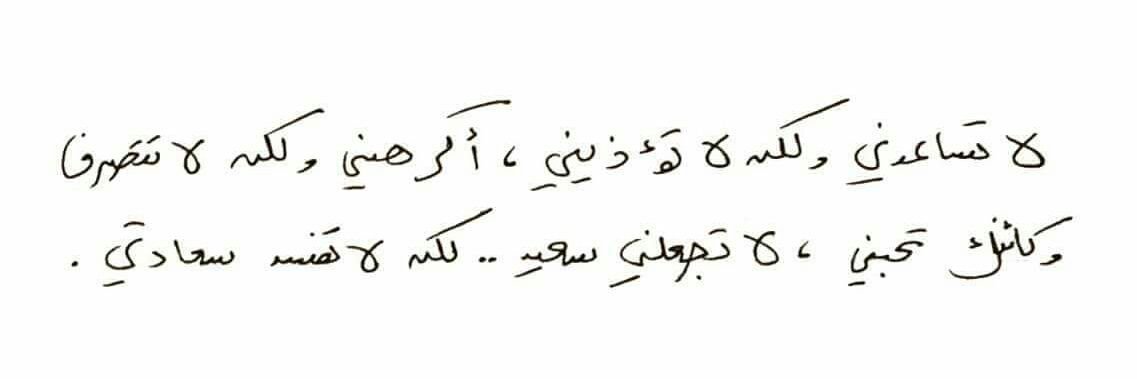 لا تساعدني ولكن لا تؤذيني ، أكرهني ولكن لا تتصرف
وكأنك تحبني ، لا تجعلني سعيد .. لكن لا تفسد سعادتي .